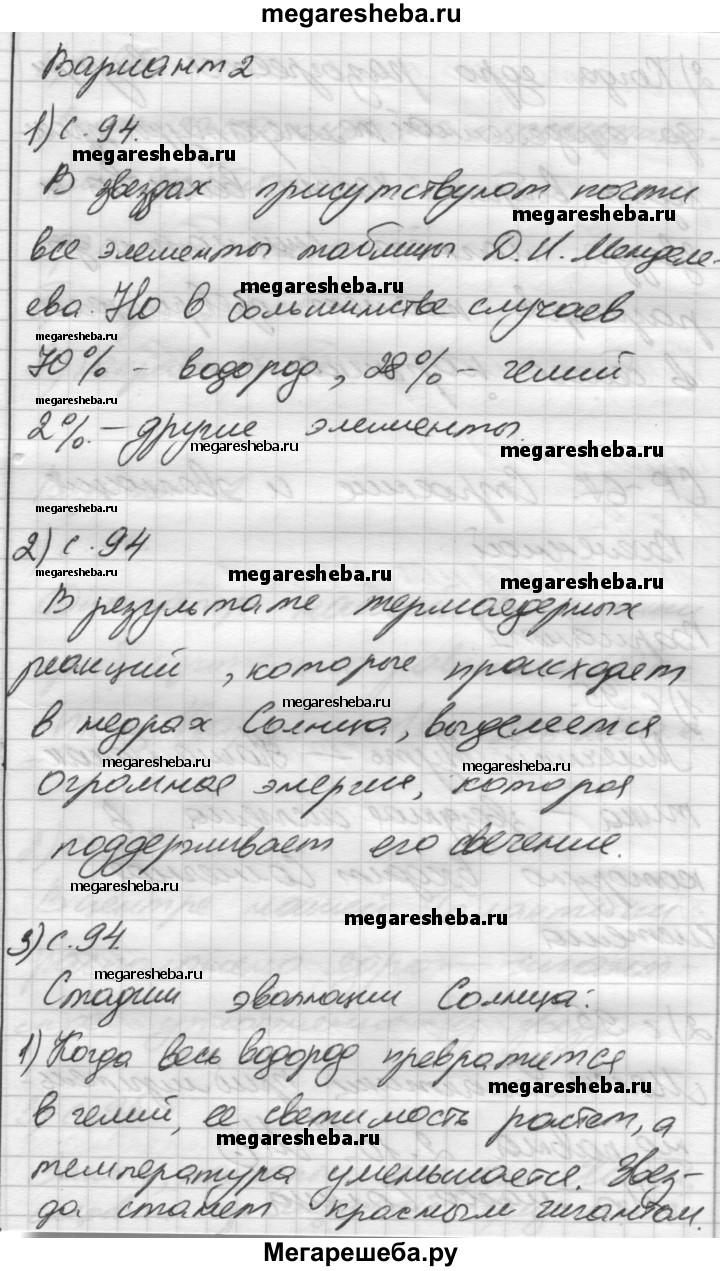 megaresheba.ru
Вариант 2
1) с. 94.
megaresheba.ru
В звездах присутствуют почти
megaresheba.ru
все элементы таблицы Д. И. Менделе-
megaresheba.ru
ева. Но в большинстве случаев
megaresheba.ru
70% - водород, 28% - гелий
megaresheba.ru
2%. - другие элементы.
megaresheba.ru
megaresheba.ru
megaresheba.ru
2) с. 94
megaresheba.ru
megaresheba.ru
megaresheba.ru
В результате термоядерных
реакций, которые происходят
megaresheba.ru
в недрах Солнца, выделяется
megaresheba.ru
megaresheba.ru
огромная энергия, которая
поддерживает его свечение.
megaresheba.ru
megaresheba.ru
3) с. 94.
megaresheba.ru
Стадии эволюции Солнца:
1) Когда весь водород превратится
megaresheba.ru
в гелий, ее светимость растет, а
megaresheba.ru
температура уменьшается. Звез-
да станет красным гигантом.
Мегарешеба.ру